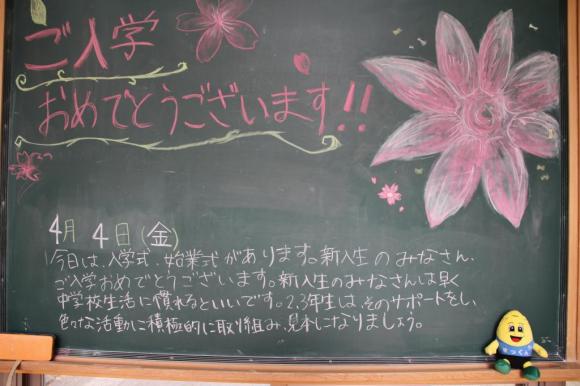 ご入学
おめでとうございます!!
4月 4日(金)
今日は、入学式、始業式があります。新入生のみなさん、
ご入学おめでとうございます。新入生のみなさんは早く
中学校生活に慣れるといいです。2.3年生は、そのサポートをし、
色々な活動に積極的に取り組み、見本になりましょう。